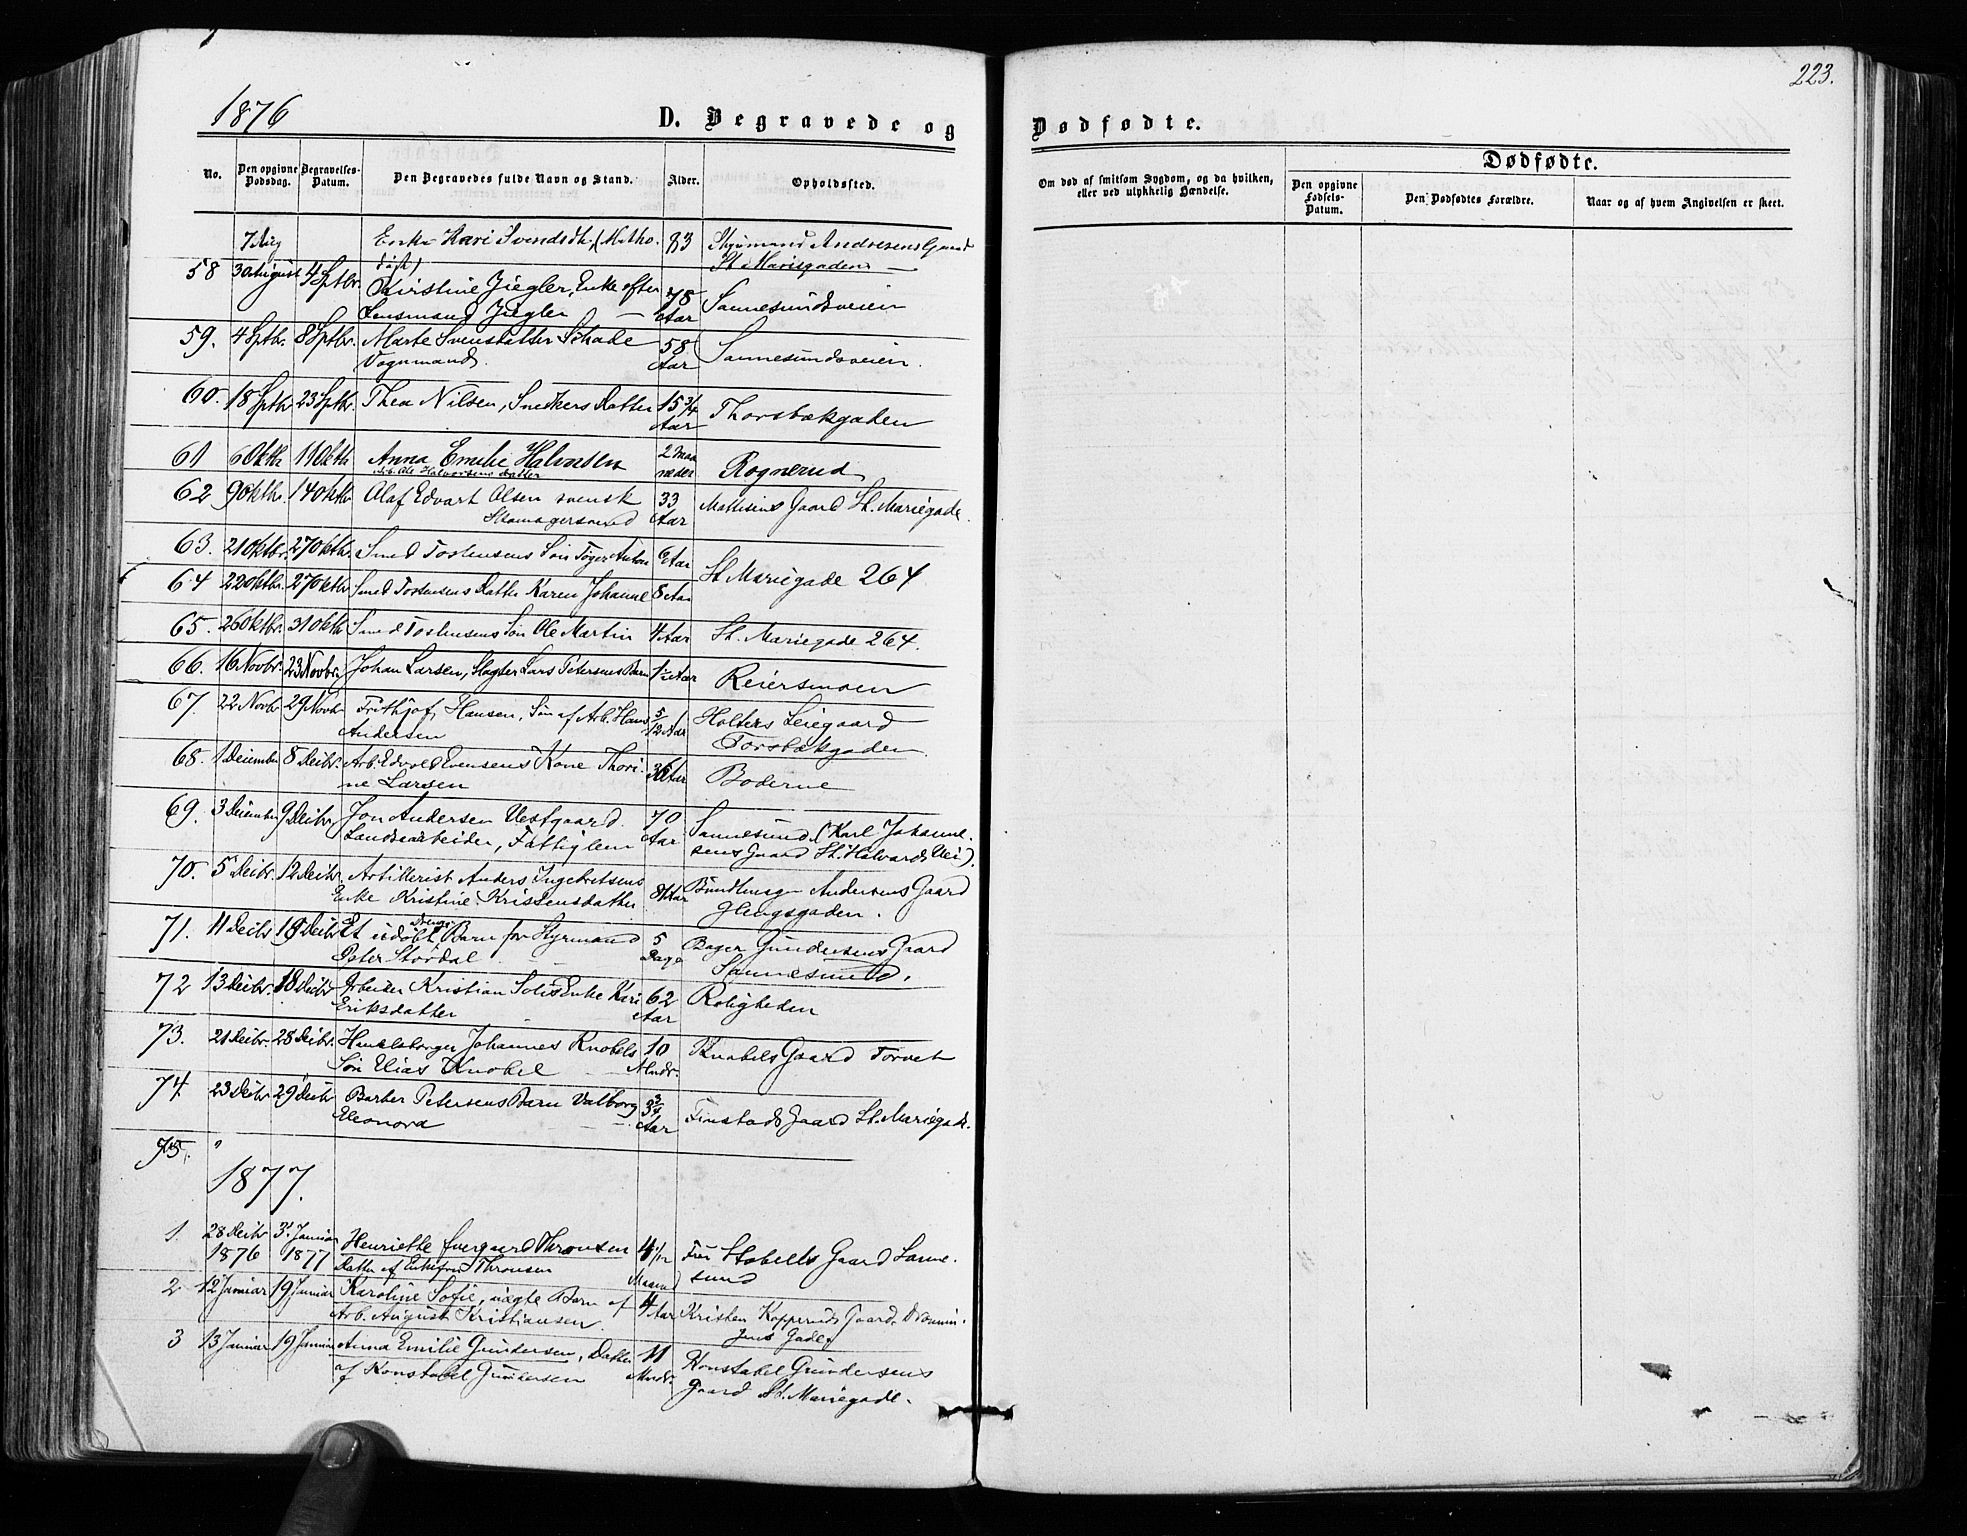 223.
1876
D. Begravede og
Dødfødte.
No.
Den opgivne Dødsdag.
Begravelses-Datum.
Den Begravedes fulde Navn og Stand.
Alder.
Opholdssted.
Om død af smitsom Sygdom, og da hvilken, eller ved ulykkelig Hændelse.
Dødfødte.
Den opgivne Fødsels-Datum.
Den Dødfødtes Forældre.
Naar og af hvem Angivelsen er skeet.
7 Aug Enke Kari Svendsdtr. (Metho- 83 Andresens Gaard
dist) St Mariegaden
58 30 August 4 Sptbr. Kirstine Ziegler, Enke efter 78 Sannesundsveien
Lensmand Ziegler Aar
59. 4 Sptbr. 8 Sptbr. Marte Svensdatter Schade 58 Sannesundsveien.
Vognmand. Aar
60. 18 Sptbr 23 Sptbr. Thea Nilsen, Snedkers Datter 15 3/4 Thorsbækgaden
Aar
61 6 Oktb. 11 Oktb Anna Emilie Halvorsen 2 Maa- Rognerud
Arb. Ole Halvorsens Datter neder
62 9 Oktbr. 14 Oktbr. Olaf Edvart Olsen svensk 33 Mattisens Gaard St. Mariegade.
Skomagersvend Aar
63. 21 Oktbr. 27 Oktbr. Smed Tostensens Søn Anton 6 Aar
64 22 Oktbr. 27 Oktbr Smed Tostensens Datter Karen Johanne 8 Aar St. Mariegade 264
65. 26 Oktbr. 31 Oktb Smed Tostensens Søn Ole Martin 4 Aar St. Mariegade 264.
66. 16 Novbr. 23 Novbr. Johan Larsen, Slagter Lars Petersens Barn 1½ Aar Reiersmoen
67. 22 Novbr 29 Novbr Frithjof Hansen, Søn af Arb. Hans 5/12 Aar Holters Leiegaard
Andersen Torsbækgaden
68. 1 December 8 Decbr. Arb. Edvold Evensens Kone Thori- 36 Aar Boderne
ne Larsen
69. 3 December 9 Decbr. Jon Andersen Vestgaard. 70 Sannesund (Karl Johanne-
Landsarbeider, Fattiglem Aar sens Gaard St. Halvards Vei).
70. 5 Decbr. 12 Decbr. Artillerist Anders Ingebretsens Andersens Gaard
Enke Kristine Kristensdatter Aar Glengsgaden.
71. 11 Decbr 18 Decbr Et udøbt Drenge Barn for Styrmand 5 Bager Gundersens Gaard
Peter Stordal Dage Sannesund.
72 13 Decbr. 18 Decbr Arbeider Kristian Enke Kari 62 Roligheden
Eriksdatter Aar
73. 21 Decbr. 28 Decbr. Handelsborger Johannes Knobels 10 Knobels Gaard Torvet
Søn Elias Knobel Mndr.
74. 23 Decbr 29 Decbr Barber Petersens Barn Valborg 3 3/4 Finstads Gaard St. Mariegade.
Eleonora Aar
75. "
1877.
1. 28 Decbr 3' Januar Henriette Thronsen 4 1/12 Stabells Gaard Sanne-
1876 1877 Datter af Thronsen Maaned sund
2 12 Januar 19 Januar Karoline Sofie, uægte Barn af 4 Aar Kristen Kopperuds Gaard, Dronnin-
Arb. August Kristiansen. gens Gade
3 13 Januar 19 Januar Anna Emilie Gundersen, Datter 11 Konstabel Gundersens
af Konstabel Gundersen Mndr. Gaard St. Mariegade.